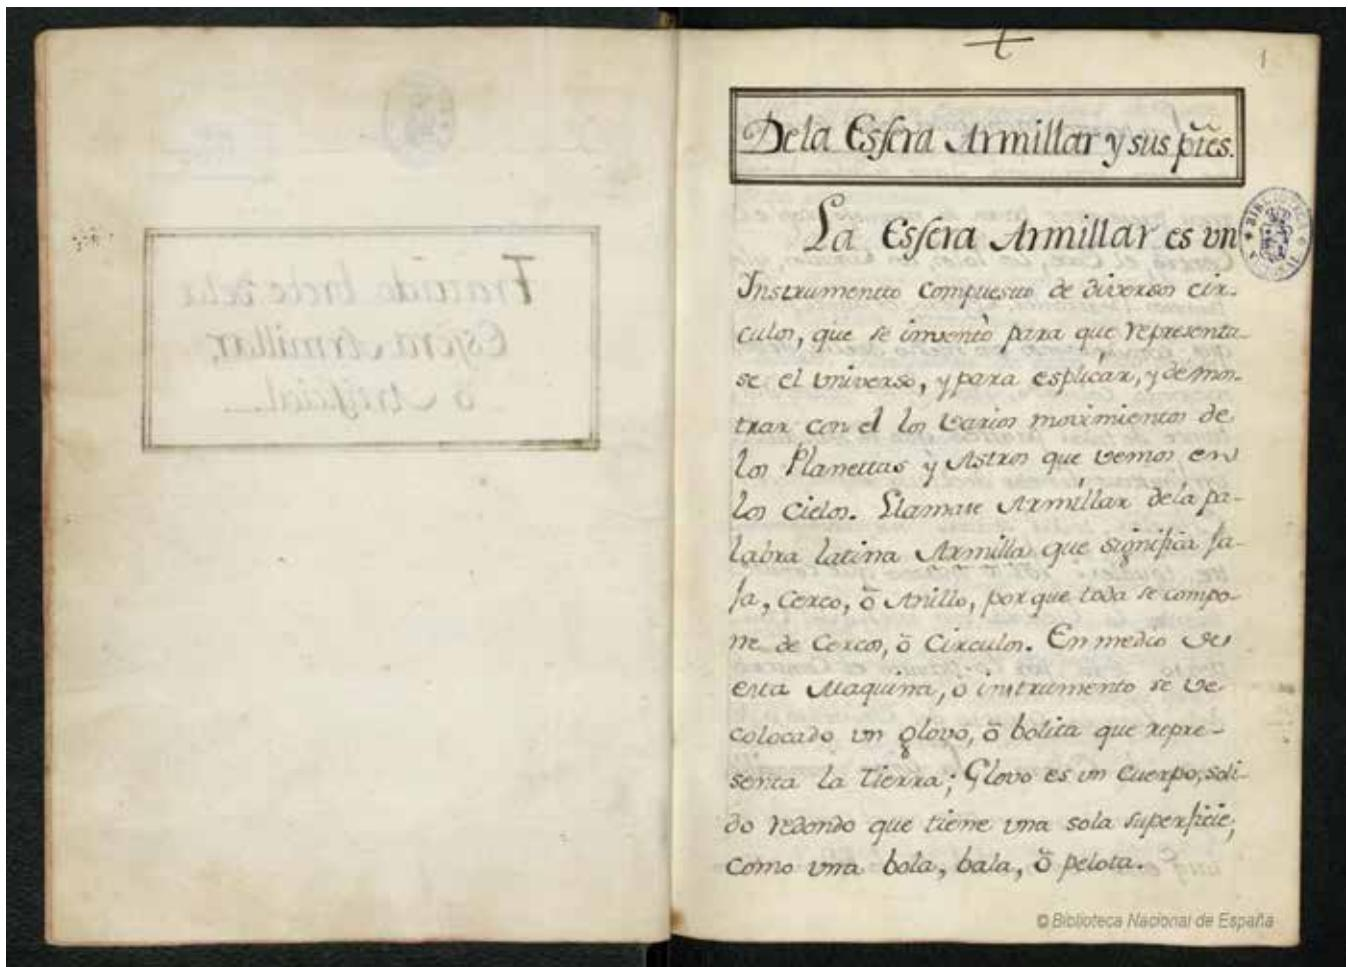 Tratado breve dela
Esfera Armillar,
ò Artificial.
1
Dela Esfera Armillar y sus ptẽs.
La Esfera Armillar es vn
Instrumentto compuestto de diversos cir-
culos, que se inventò para que representa-
se el vniverso, y para esplicar, y demos-
trar con el los varios movimientos de
los Planettas y Astros que vemos en
los cielos. Llamase Armillar dela pa-
labra latina Armilla que significa fa-
ja, Cerco, ò Anillo, porque toda se compo-
ne de Cercos, ò Circulos. En medio de
esta Maquina, ò instrumento se ve
colocado vn glovo, ò bolita que repre-
senta la Tierra; Glovo es vn cuerpo, soli-
do redondo que tiene vna sola superficie,
como vna bola, bala, ò pelota.
BIBLIOTECA NACIONAL
© Biblioteca Nacional de España